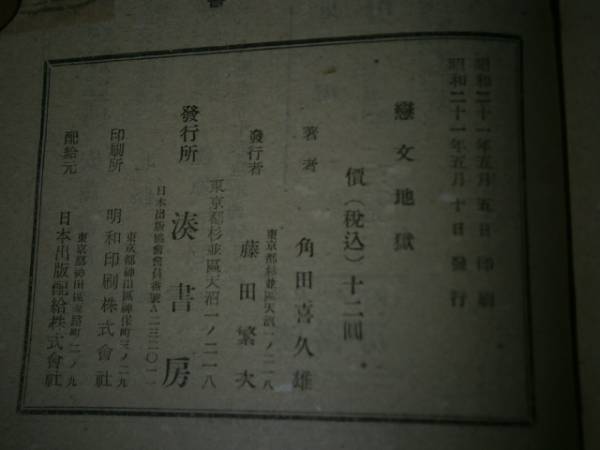 昭和二十一年五月五日印刷
昭和二十一年五月十日發行
戀文地獄
價(稅込)十二圓
著者 角田喜久雄
東京都杉並區天沼一ノ二一八
發行者 藤田繁夫
東京都杉並區天沼一ノ二一八
發行所 湊書房
日本出版協會會員番號A二三二〇一一
東京都神田區神保町三ノ二九
印刷所 明和印刷株式會社
東京都神田區淡路町二ノ九
配給元 日本出版配給株式會社